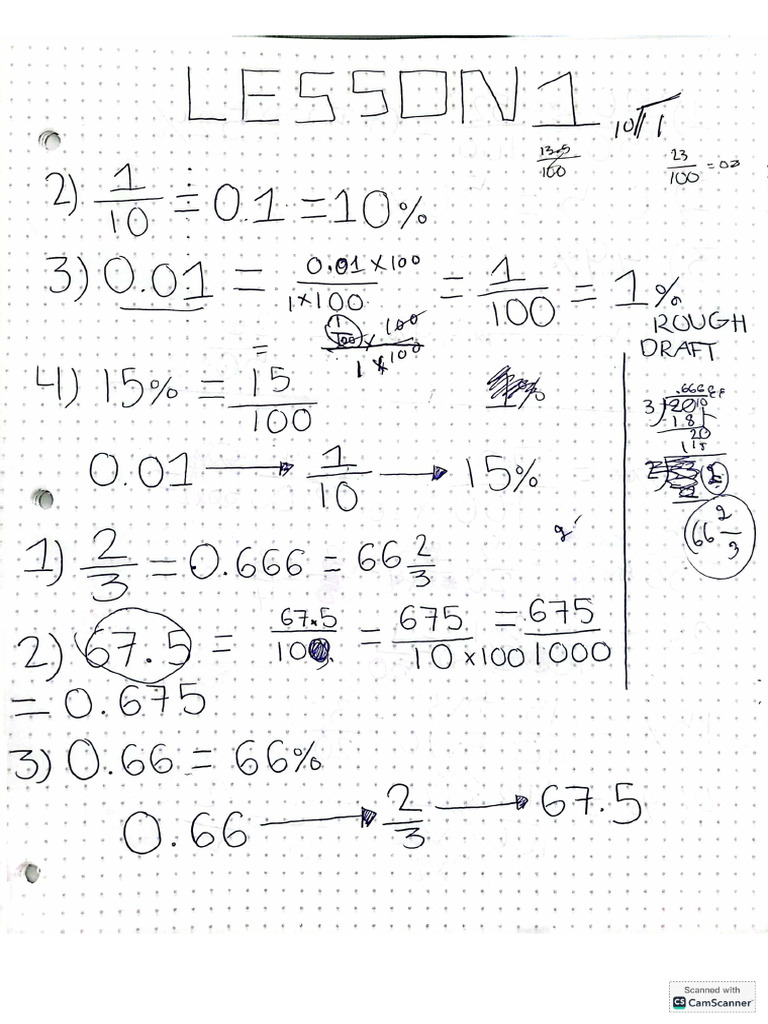 LESSON 1
10√1
13.5/100
23/100 = 0.23
2) 1/10 = 0.1 = 10%
3) 0.01 = 0.01 × 100 / 1 × 100 = 1/100 = 1%
= 1/100 × 100 / 1 × 100
ROUGH
DRAFT
4) 15% = 15/100
0.01 → 1/10 → 15%
1) 2/3 = 0.666 = 66 2/3
66 2/3
2) 67.5 = 67.5/100 = 675/10 × 100 = 675/1000
= 0.675
3) 0.66 = 66%
0.66 → 2/3 → 67.5
Scanned with
CS CamScanner